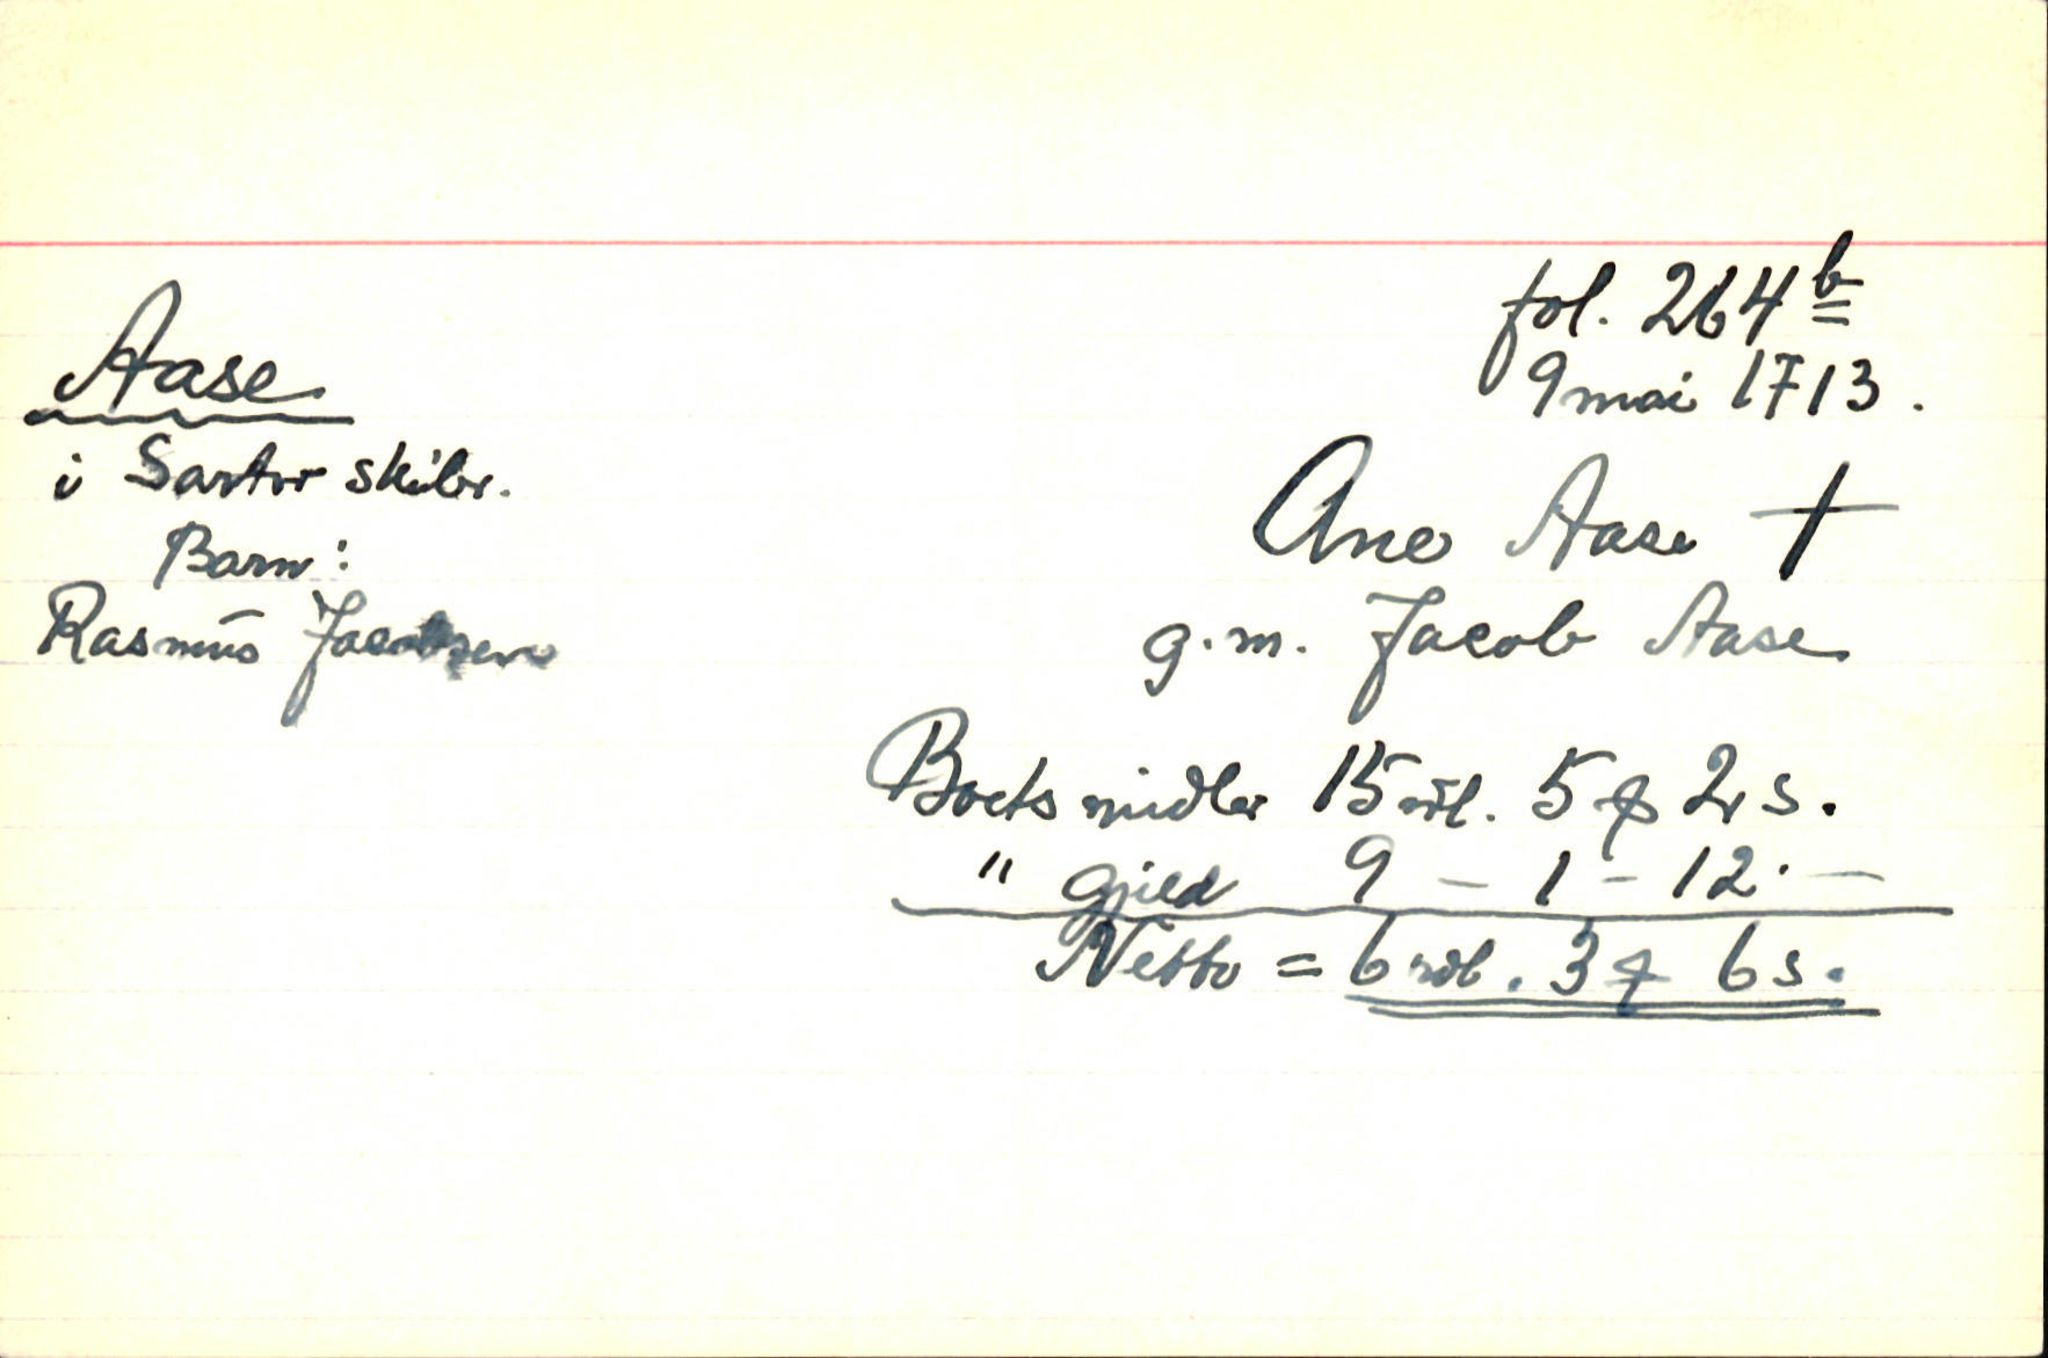 fol. 264b
9 mai 1713.
Aase
i Sartor skibr.
Barn:
Rasmus Jacobsen
Ane Aase †
g.m. Jacob Aase
Boets midler 15 rdl. 5 ꝗ 2 s.
" gjeld 9 – 1 – 12. —
Netto = 6 rdl. 3 ꝗ 6 s.